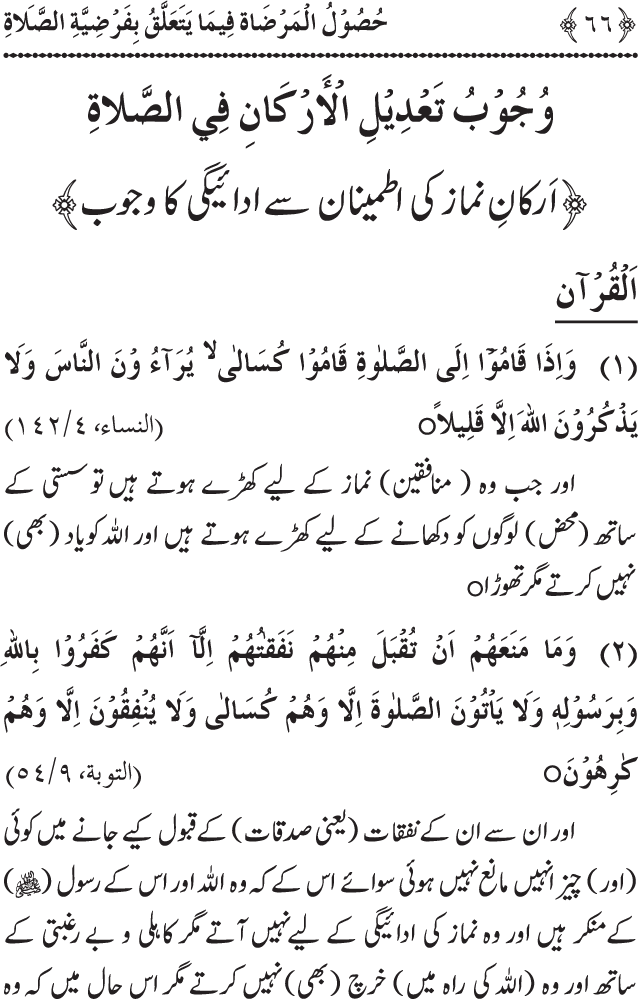 ﴿۶۶﴾ حُصُوْلُ الْمَرْضَاة فِيمَا يَتَعَلَّقُ بِفَرْضِيَّةِ الصَّلَاةِ
وُجُوْبُ تَعْدِيْلِ الْأَرْكَانِ فِي الصَّلَاةِ
﴿اَرکانِ نماز کی اطمینان سے ادائیگی کا وجوب﴾
اَلْقُرْآن
(۱) وَاِذَا قَامُوْٓا اِلَى الصَّلٰوةِ قَامُوْا كُسَالٰى ۙ يُرَآءُ وْنَ النَّاسَ وَلَا
يَذْكُرُوْنَ اللهَ اِلَّا قَلِيلاً○ (النساء، ۱٤۲/٤)
اور جب وہ ( منافقین) نماز کے لیے کھڑے ہوتے ہیں تو سستی کے
ساتھ (محض) لوگوں کو دکھانے کے لیے کھڑے ہوتے ہیں اور اللہ کو یاد (بھی)
نہیں کرتے مگر تھوڑا○
(۲) وَمَا مَنَعَهُمْ اَنْ تُقْبَلَ مِنْهُمْ نَفَقٰتُهُمْ اِلَّآ اَنَّهُمْ كَفَرُوْا بِاللهِ
وَبِرَسُوْلِهٖ وَلَا يَاْتُوْنَ الصَّلٰوةَ اِلَّا وَهُمْ كُسَالٰى وَلَا يُنْفِقُوْنَ اِلَّا وَهُمْ
كٰرِهُوْنَ○ (التوبة، ٥٤/۹)
اور ان سے ان کے نفقات (یعنی صدقات) کے قبول کیے جانے میں کوئی
(اور) چیز انہیں مانع نہیں ہوئی سوائے اس کے کہ وہ اللہ اور اس کے رسول (ﷺ)
کے منکر ہیں اور وہ نماز کی ادائیگی کے لیے نہیں آتے مگر کاہلی و بے رغبتی کے
ساتھ اور وہ (اللہ کی راہ میں) خرچ (بھی) نہیں کرتے مگر اس حال میں کہ وہ